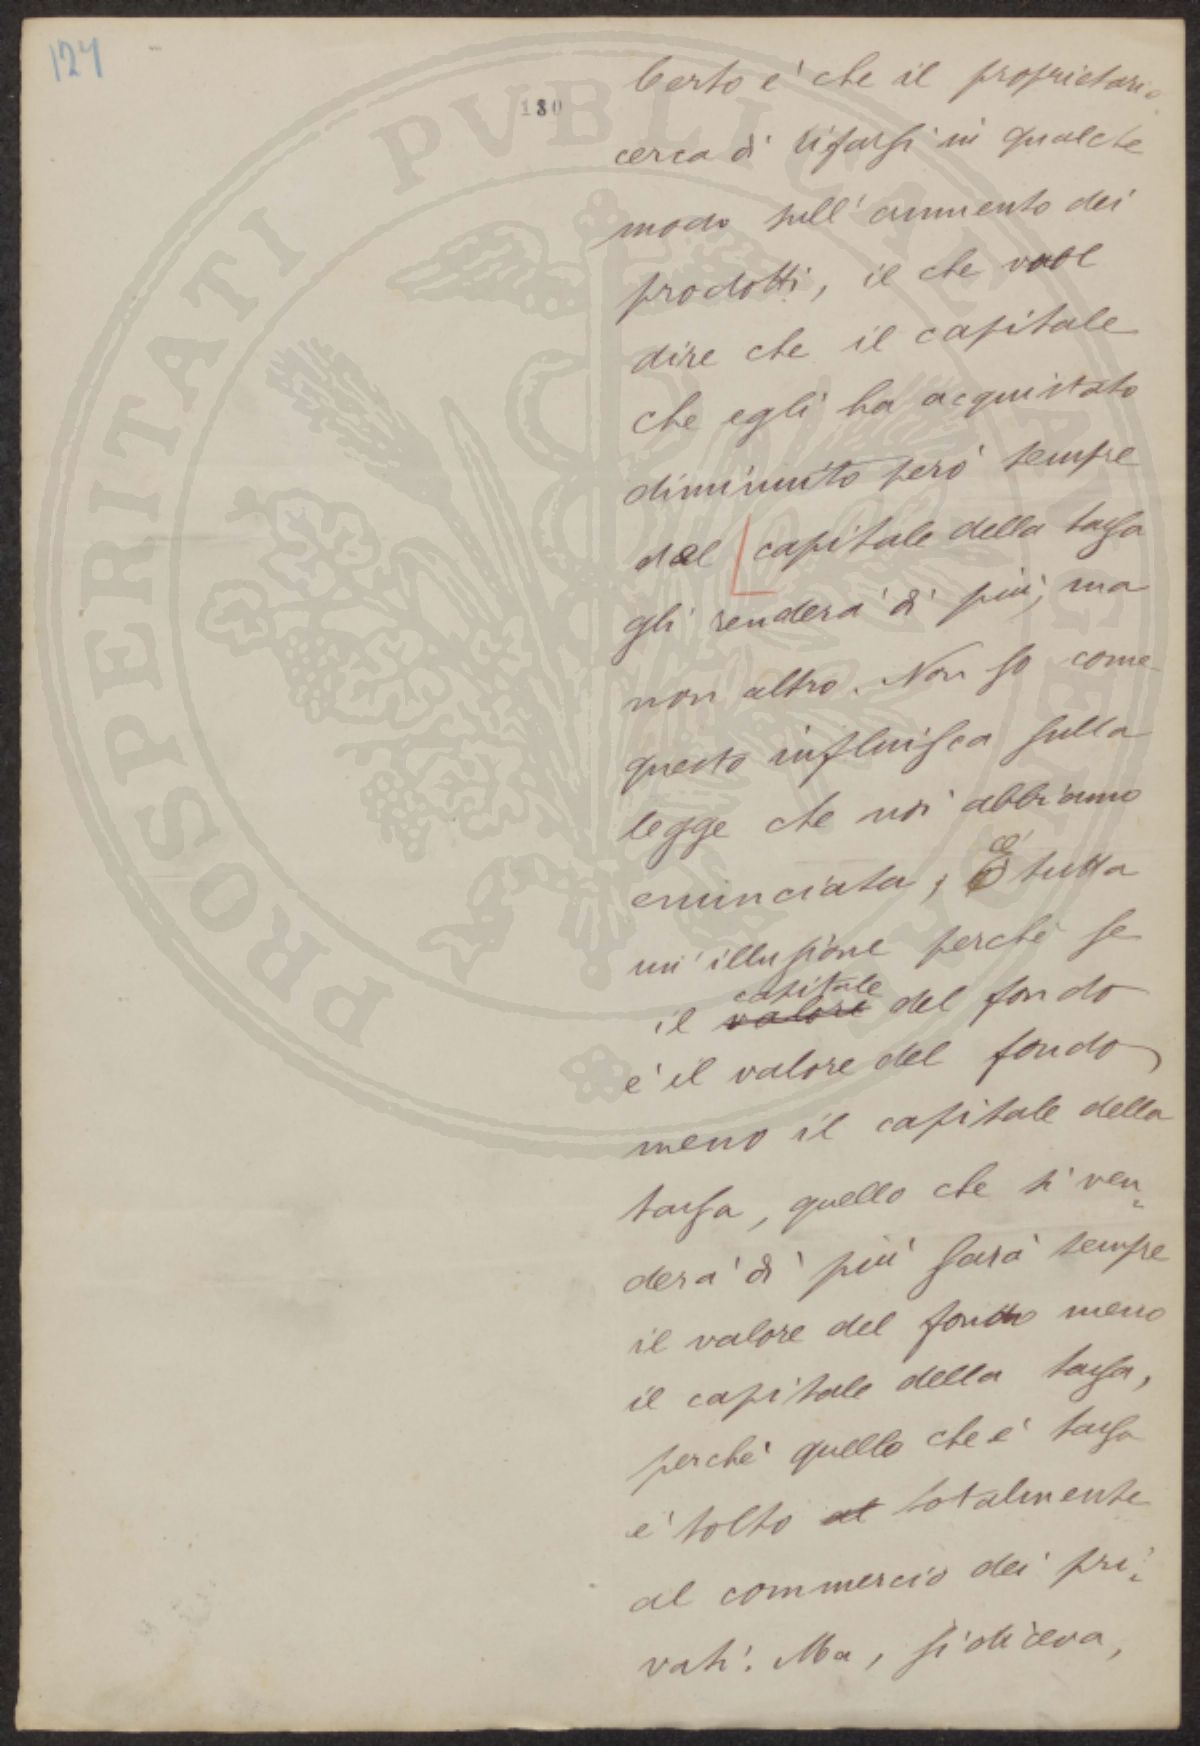 124
180
Certo è che il proprietario
cerca di rifarsi in qualche
modo sull'aumento dei
prodotti, il che vuol
dire che il capitale
che egli ha acquistato
diminuito però sempre
del capitale della tassa
gli renderà di più, ma
non altro. Non so come
questo influisca sulla
legge che noi abbiamo
enunciata; È tutta
un'illusione perchè se
capitale
il valore del fondo
è il valore del fondo
meno il capitale della
tassa, quello che si ven-
derà di più sarà sempre
il valore del fondo meno
il capitale della tassa,
perchè quello che è tassa
è tolto al totalmente
al commercio dei pri-
vati. Ma, si diceva,
PROSPERITATI PVBLICAE AVGENDAE